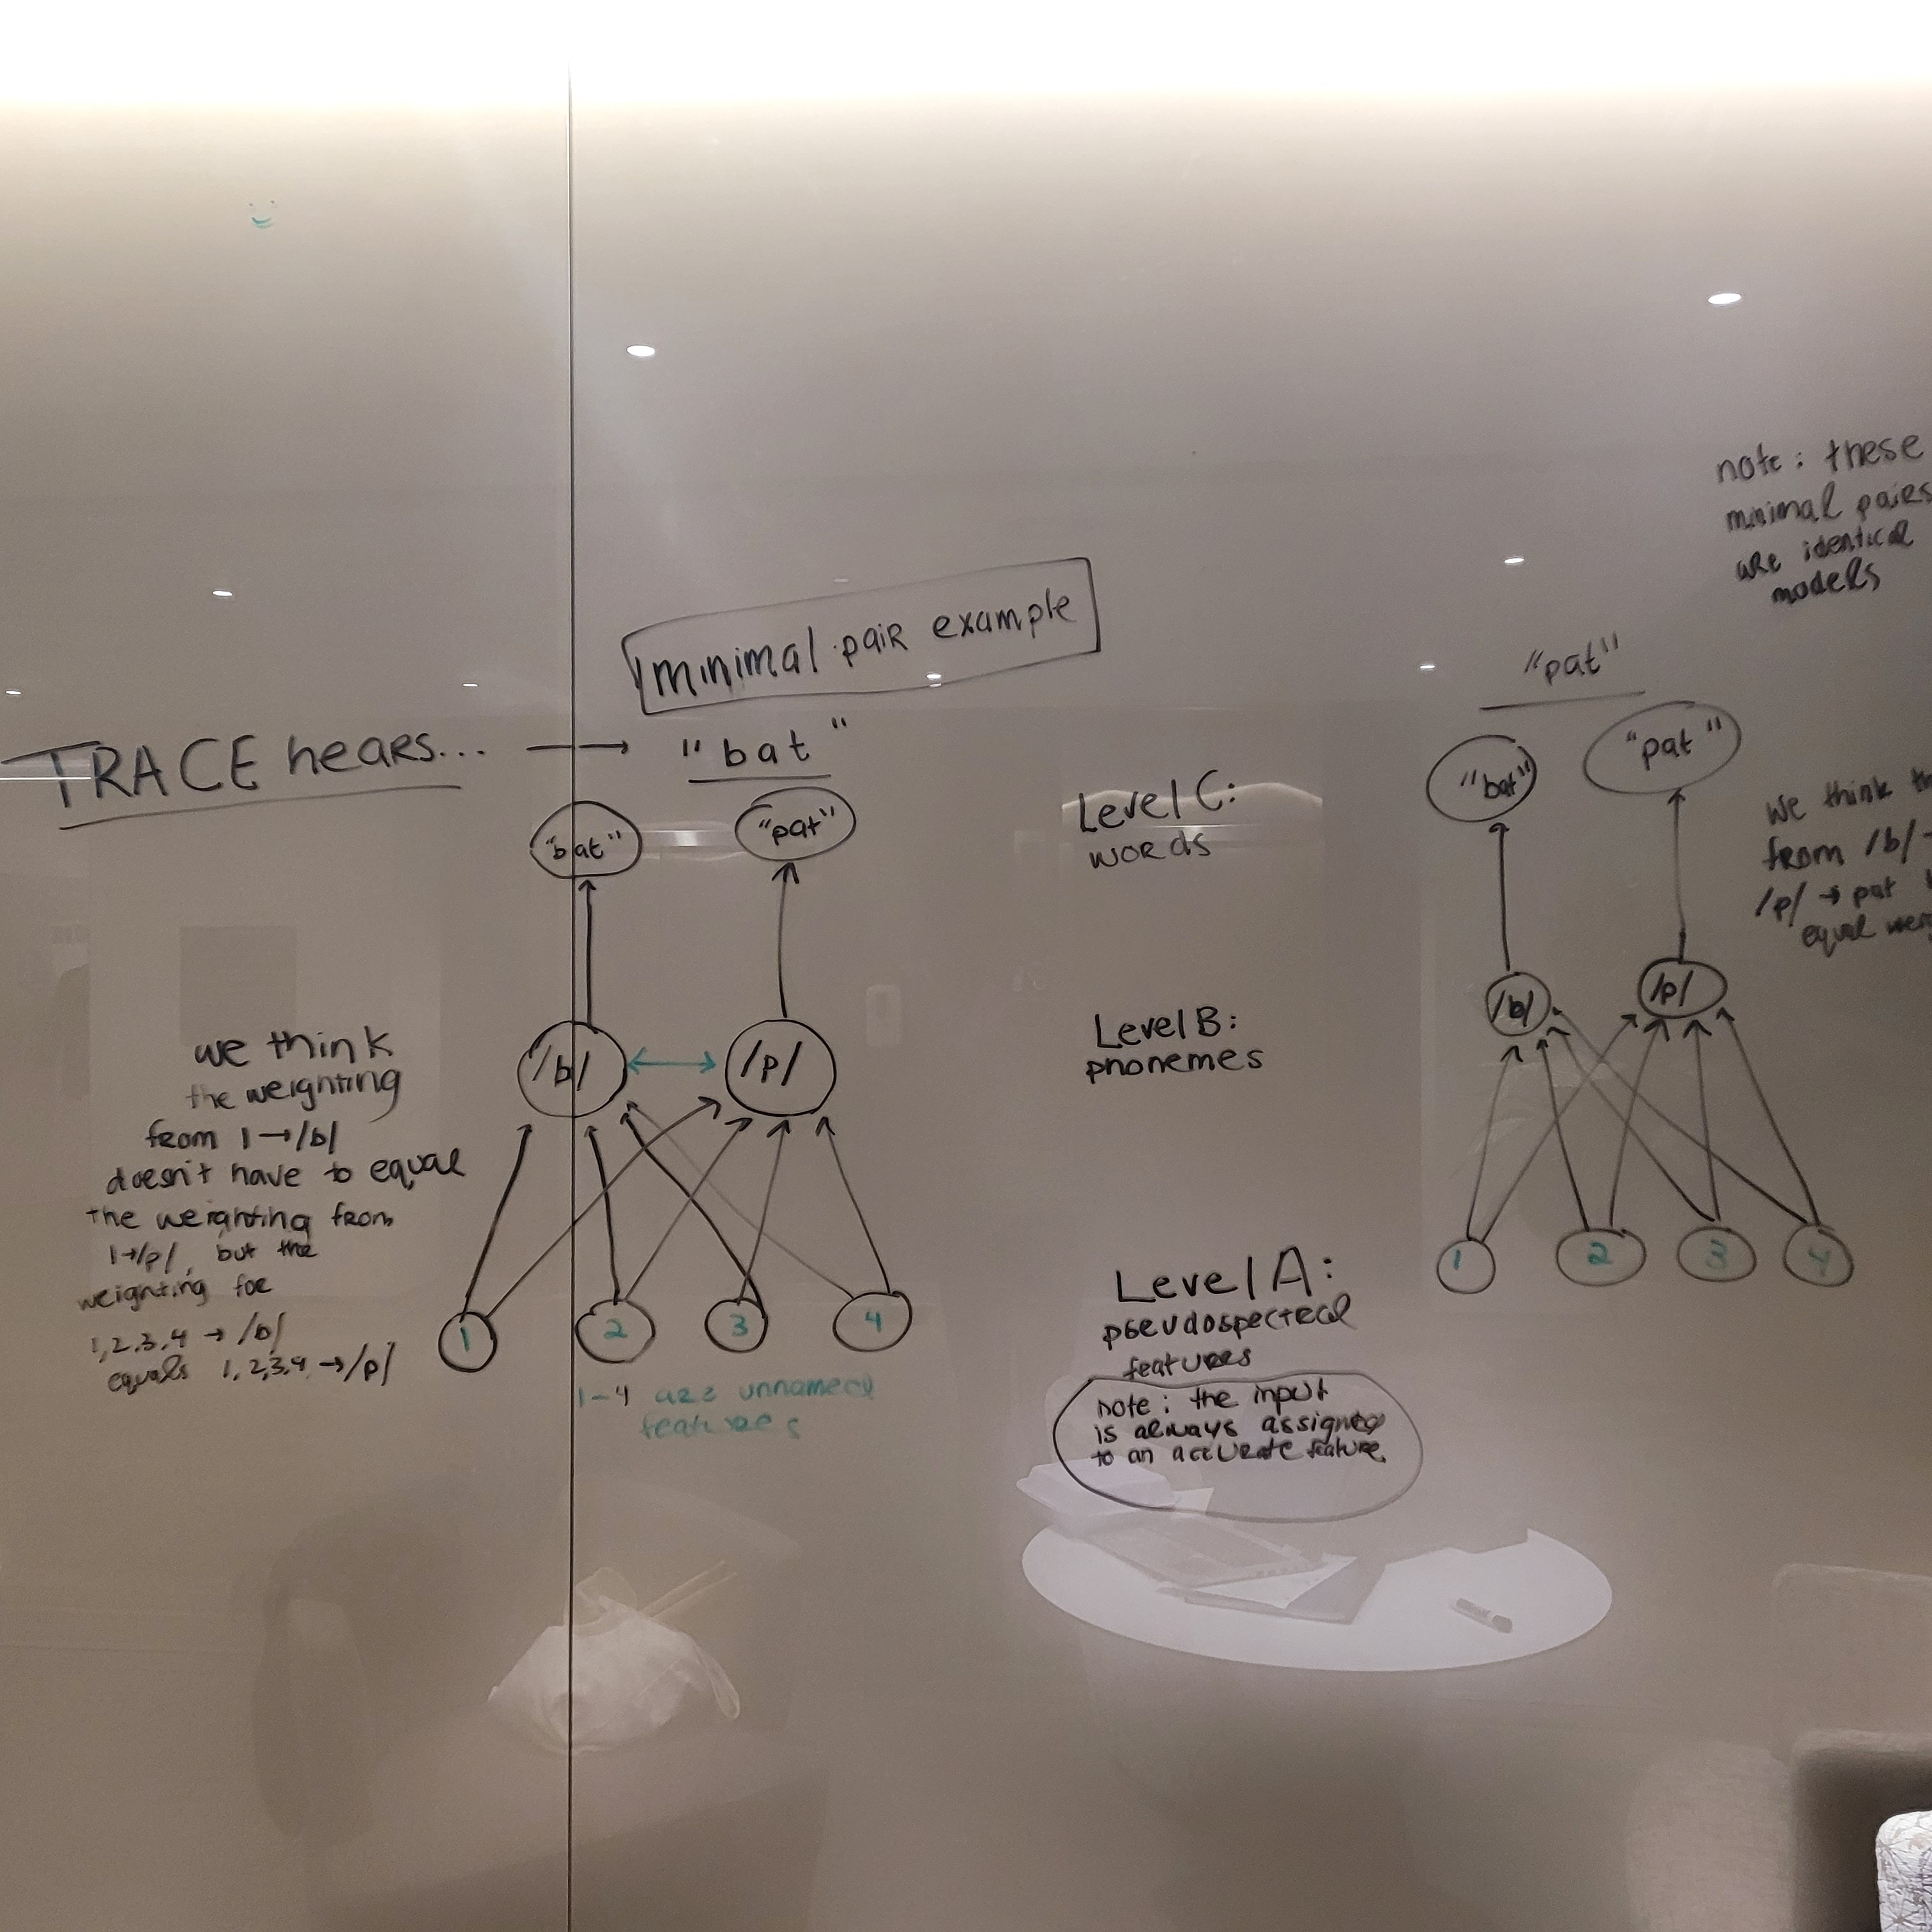 minimal pair example
TRACE hears... → "bat"
"bat" "pat"
/b/ ↔ /p/
1 2 3 4
1-4 are unnamed
features
we think
the weighting
from 1→/b/
doesn't have to equal
the weighting from
1→/p/, but the
weighting for
1,2,3,4 → /b/
equals 1,2,3,4 → /p/
Level C:
words
Level B:
phonemes
Level A:
pseudospectral
features
note: the input
is always assigned
to an accurate feature
"pat"
"bat" "pat"
/b/ /p/
1 2 3 4
note: these
minimal pairs
are identical
models
we think
from /b/
/p/ → pat
equal